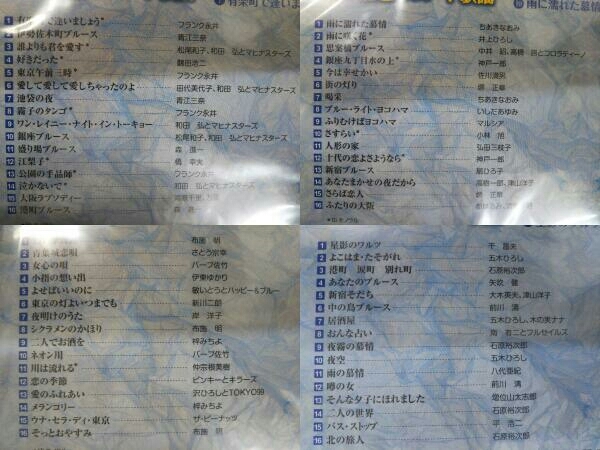 有楽町で逢いま
1 有楽町で逢いましょう* フランク永井
2 伊勢佐木町ブルース 青江三奈
3 誰よりも君を愛す* 松尾和子、和田 弘とマヒナスターズ
4 好きだった* 鶴田浩二
5 東京午前三時* フランク永井
6 愛して愛して愛しちゃったのよ 田代美代子、和田 弘とマヒナスターズ
7 池袋の夜 青江三奈
8 霧子のタンゴ* フランク永井
9 ワン・レイニー・ナイト・イン・トーキョー 和田 弘とマヒナスターズ
10 銀座ブルース 松尾和子、和田 弘とマヒナスターズ
11 盛り場ブルース 森 進一
12 江梨子* 橋 幸夫
13 公園の手品師* フランク永井
14 泣かないで* 和田 弘とマヒナスターズ
15 大阪ラプソディー
16 港町ブルース 森 進一
雨に濡れた慕情
1 雨に濡れた慕情 ちあきなおみ
2 雨に咲く花* 井上ひろし
3 思案橋ブルース 中井 昭、高橋 勝とコロラティーノ
4 銀座九丁目水の上* 神戸一郎
5 今は幸せかい 佐川満男
6 街の灯り 堺 正章
7 喝采 ちあきなおみ
8 ブルー・ライト・ヨコハマ いしだあゆみ
9 ふりむけばヨコハマ マルシア
10 さすらい* 小林 旭
11 人形の家 弘田三枝子
12 十代の恋よさようなら* 神戸一郎
13 新宿ブルース 扇ひろ子
14 あなたまかせの夜だから 高樹一郎、津山洋子
15 さらば恋人 堺 正章
16 ふたりの大阪
*印モノラル
布施 明
2 青葉城恋唄 さとう宗幸
3 女心の唄 バーブ佐竹
4 小指の想い出 伊東ゆかり
5 よせばいいのに 敏いとうとハッピー&ブルー
6 東京の灯よいつまでも 新川二郎
7 夜明けのうた 岸 洋子
8 シクラメンのかほり 布施 明
9 二人でお酒を 梓みちよ
10 ネオン川 バーブ佐竹
11 川は流れる* 仲宗根美樹
12 恋の季節 ピンキーとキラーズ
13 愛のふれあい 沢ひろしとTOKYO99
14 メランコリー 梓みちよ
15 ウナ・セラ・ディ・東京 ザ・ピーナッツ
16 そっとおやすみ 布施 明
1 星影のワルツ 千 昌夫
2 よこはま・たそがれ 五木ひろし
3 港町 涙町 別れ町 石原裕次郎
4 あなたのブルース 矢吹 健
5 新宿そだち 大木英夫、津山洋子
6 中の島ブルース 前川 清
7 居酒屋 五木ひろし、木の実ナナ
8 おんな占い 南 有二とフルセイルズ
9 夜霧の慕情 石原裕次郎
10 夜空 五木ひろし
11 雨の慕情 八代亜紀
12 噂の女 前川 清
13 そんな夕子にほれました 増位山太志郎
14 二人の世界 石原裕次郎
15 バス・ストップ 平 浩二
16 北の旅人 石原裕次郎